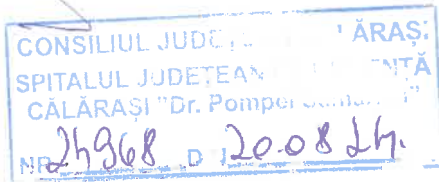 CONSILIUL JUDE ĂRAȘI
SPITALUL JUDEȚEAN ENȚĂ
CĂLĂRAȘI "Dr. Pompei
NR. 24968 D 20.08.24.